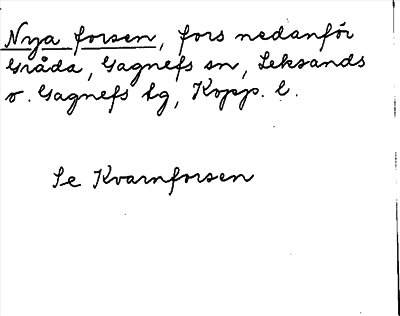 Nya forsen, fors nedanför
Gråda, Gagnefs sn, Leksands
o. Gagnefs tg, Kopp. l.
Se Kvarnforsen